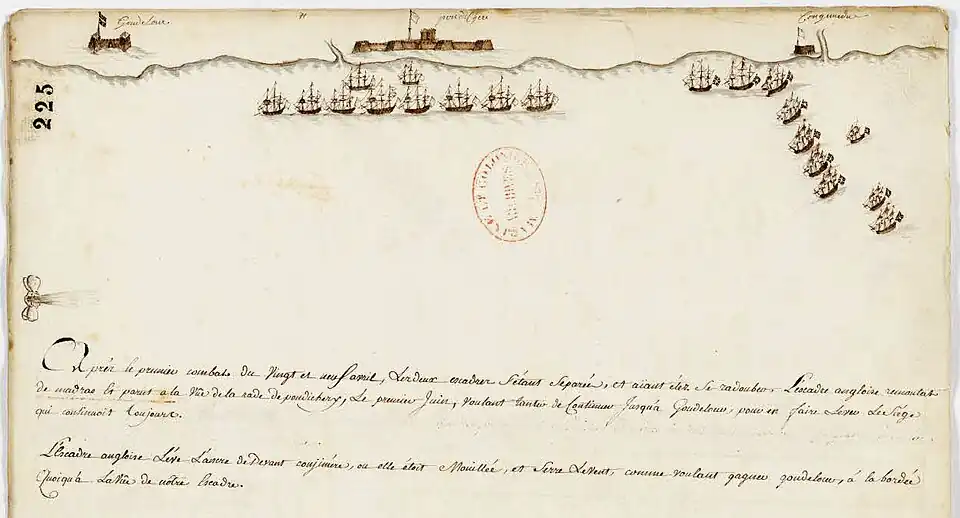 Goudelour
pondichery
Conjimere
225
MARINE ET COLONIES
ARCHIVES
Après le premier combat du Vingt et neuf avril, Les deux escadres S'étant Separée, et aiant étés Se radouber, L'escadre angloise remontat
de madras Et parut a la Vüe de la rade de pondichery, Le premier Juin, voulant tanter de Continuer Jusqu'à Goudelour, pour en faire Lever Le Siège
qui continuoit toujours.
L'Escadre angloise Léve L'ancre de Devant conjimére, ou elle étoit Mouillée, et Serre Le vent, comme voulant gagner goudelour, à la bordée
Quoiqu'à La Vüe de nôtre Escadre.